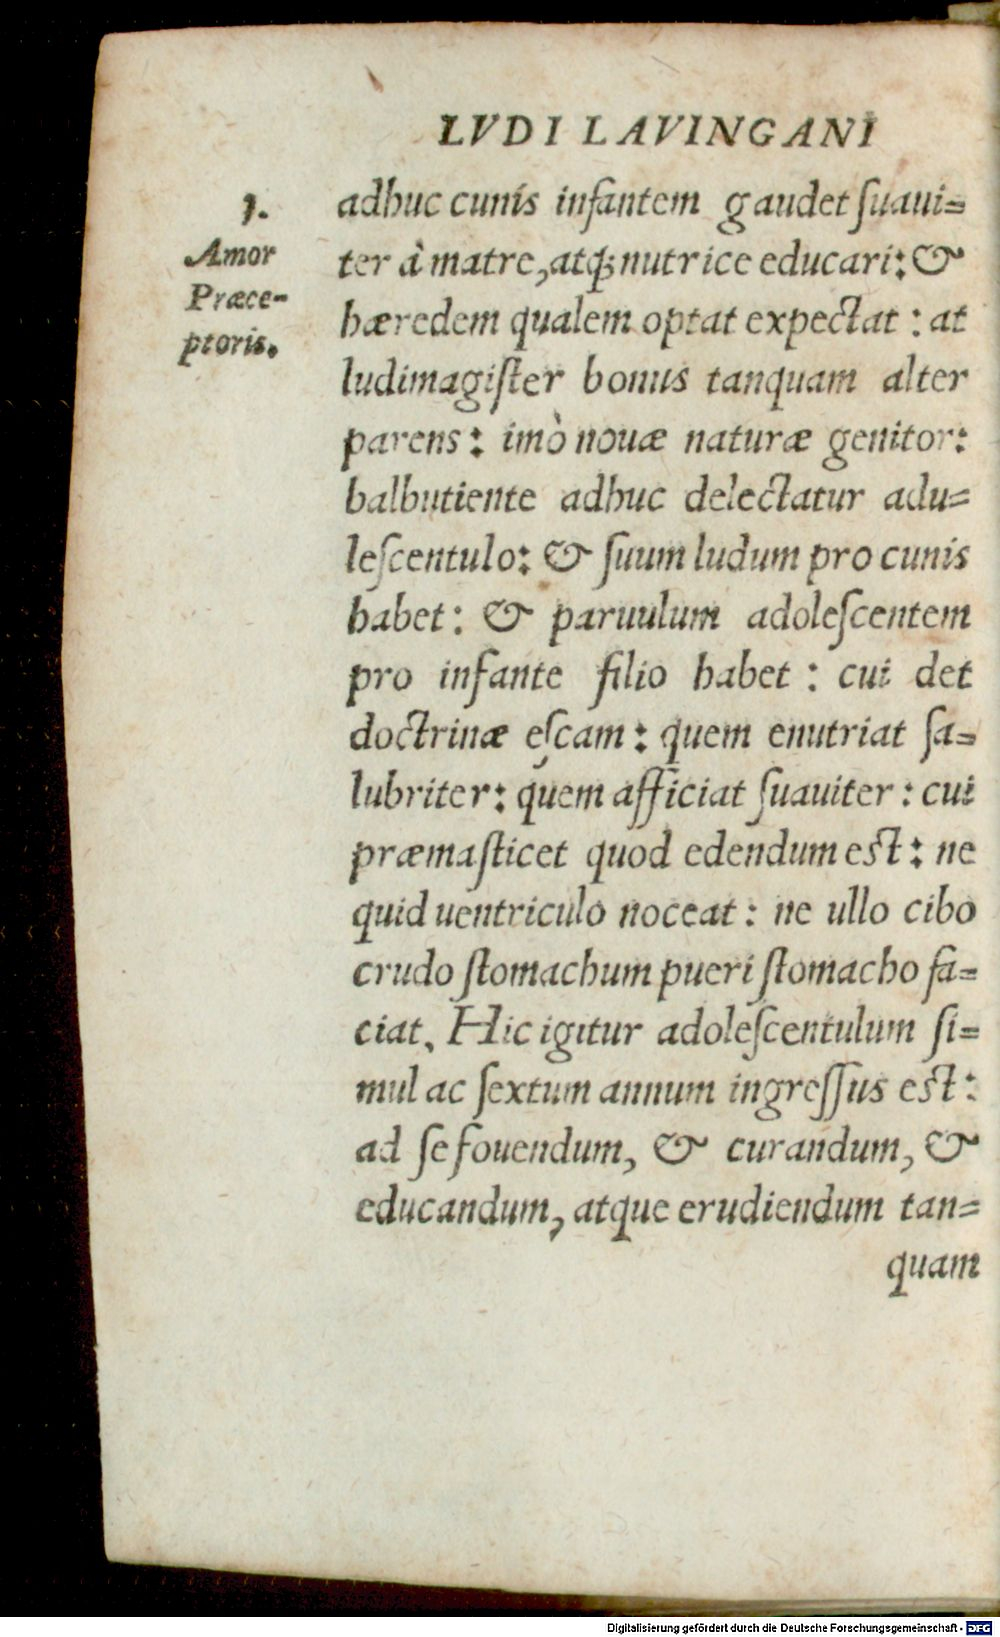 LVDI LAVINGANI
1.
Amor
Præce-
ptoris.
adhuc cunis infantem gaudet ſuaui=
ter à matre, atq; nutrice educari: &
hæredem qualem optat expectat : at
ludimagiſter bonus tanquam alter
parens: imò nouæ naturæ genitor:
balbutiente adhuc delectatur adu=
leſcentulo: & ſuum ludum pro cunis
habet: & paruulum adoleſcentem
pro infante filio habet : cui det
doctrinæ eſcam: quem enutriat ſa=
lubriter: quem afficiat ſuauiter : cui
præmaſticet quod edendum eſt: ne
quid uentriculo noceat : ne ullo cibo
crudo ſtomachum pueri ſtomacho fa=
ciat. Hic igitur adoleſcentulum ſi=
mul ac ſextum annum ingreſſus eſt:
ad ſe fouendum, & curandum, &
educandum, atque erudiendum tan=
quam
Digitalisierung gefördert durch die Deutsche Forschungsgemeinschaft - DFG